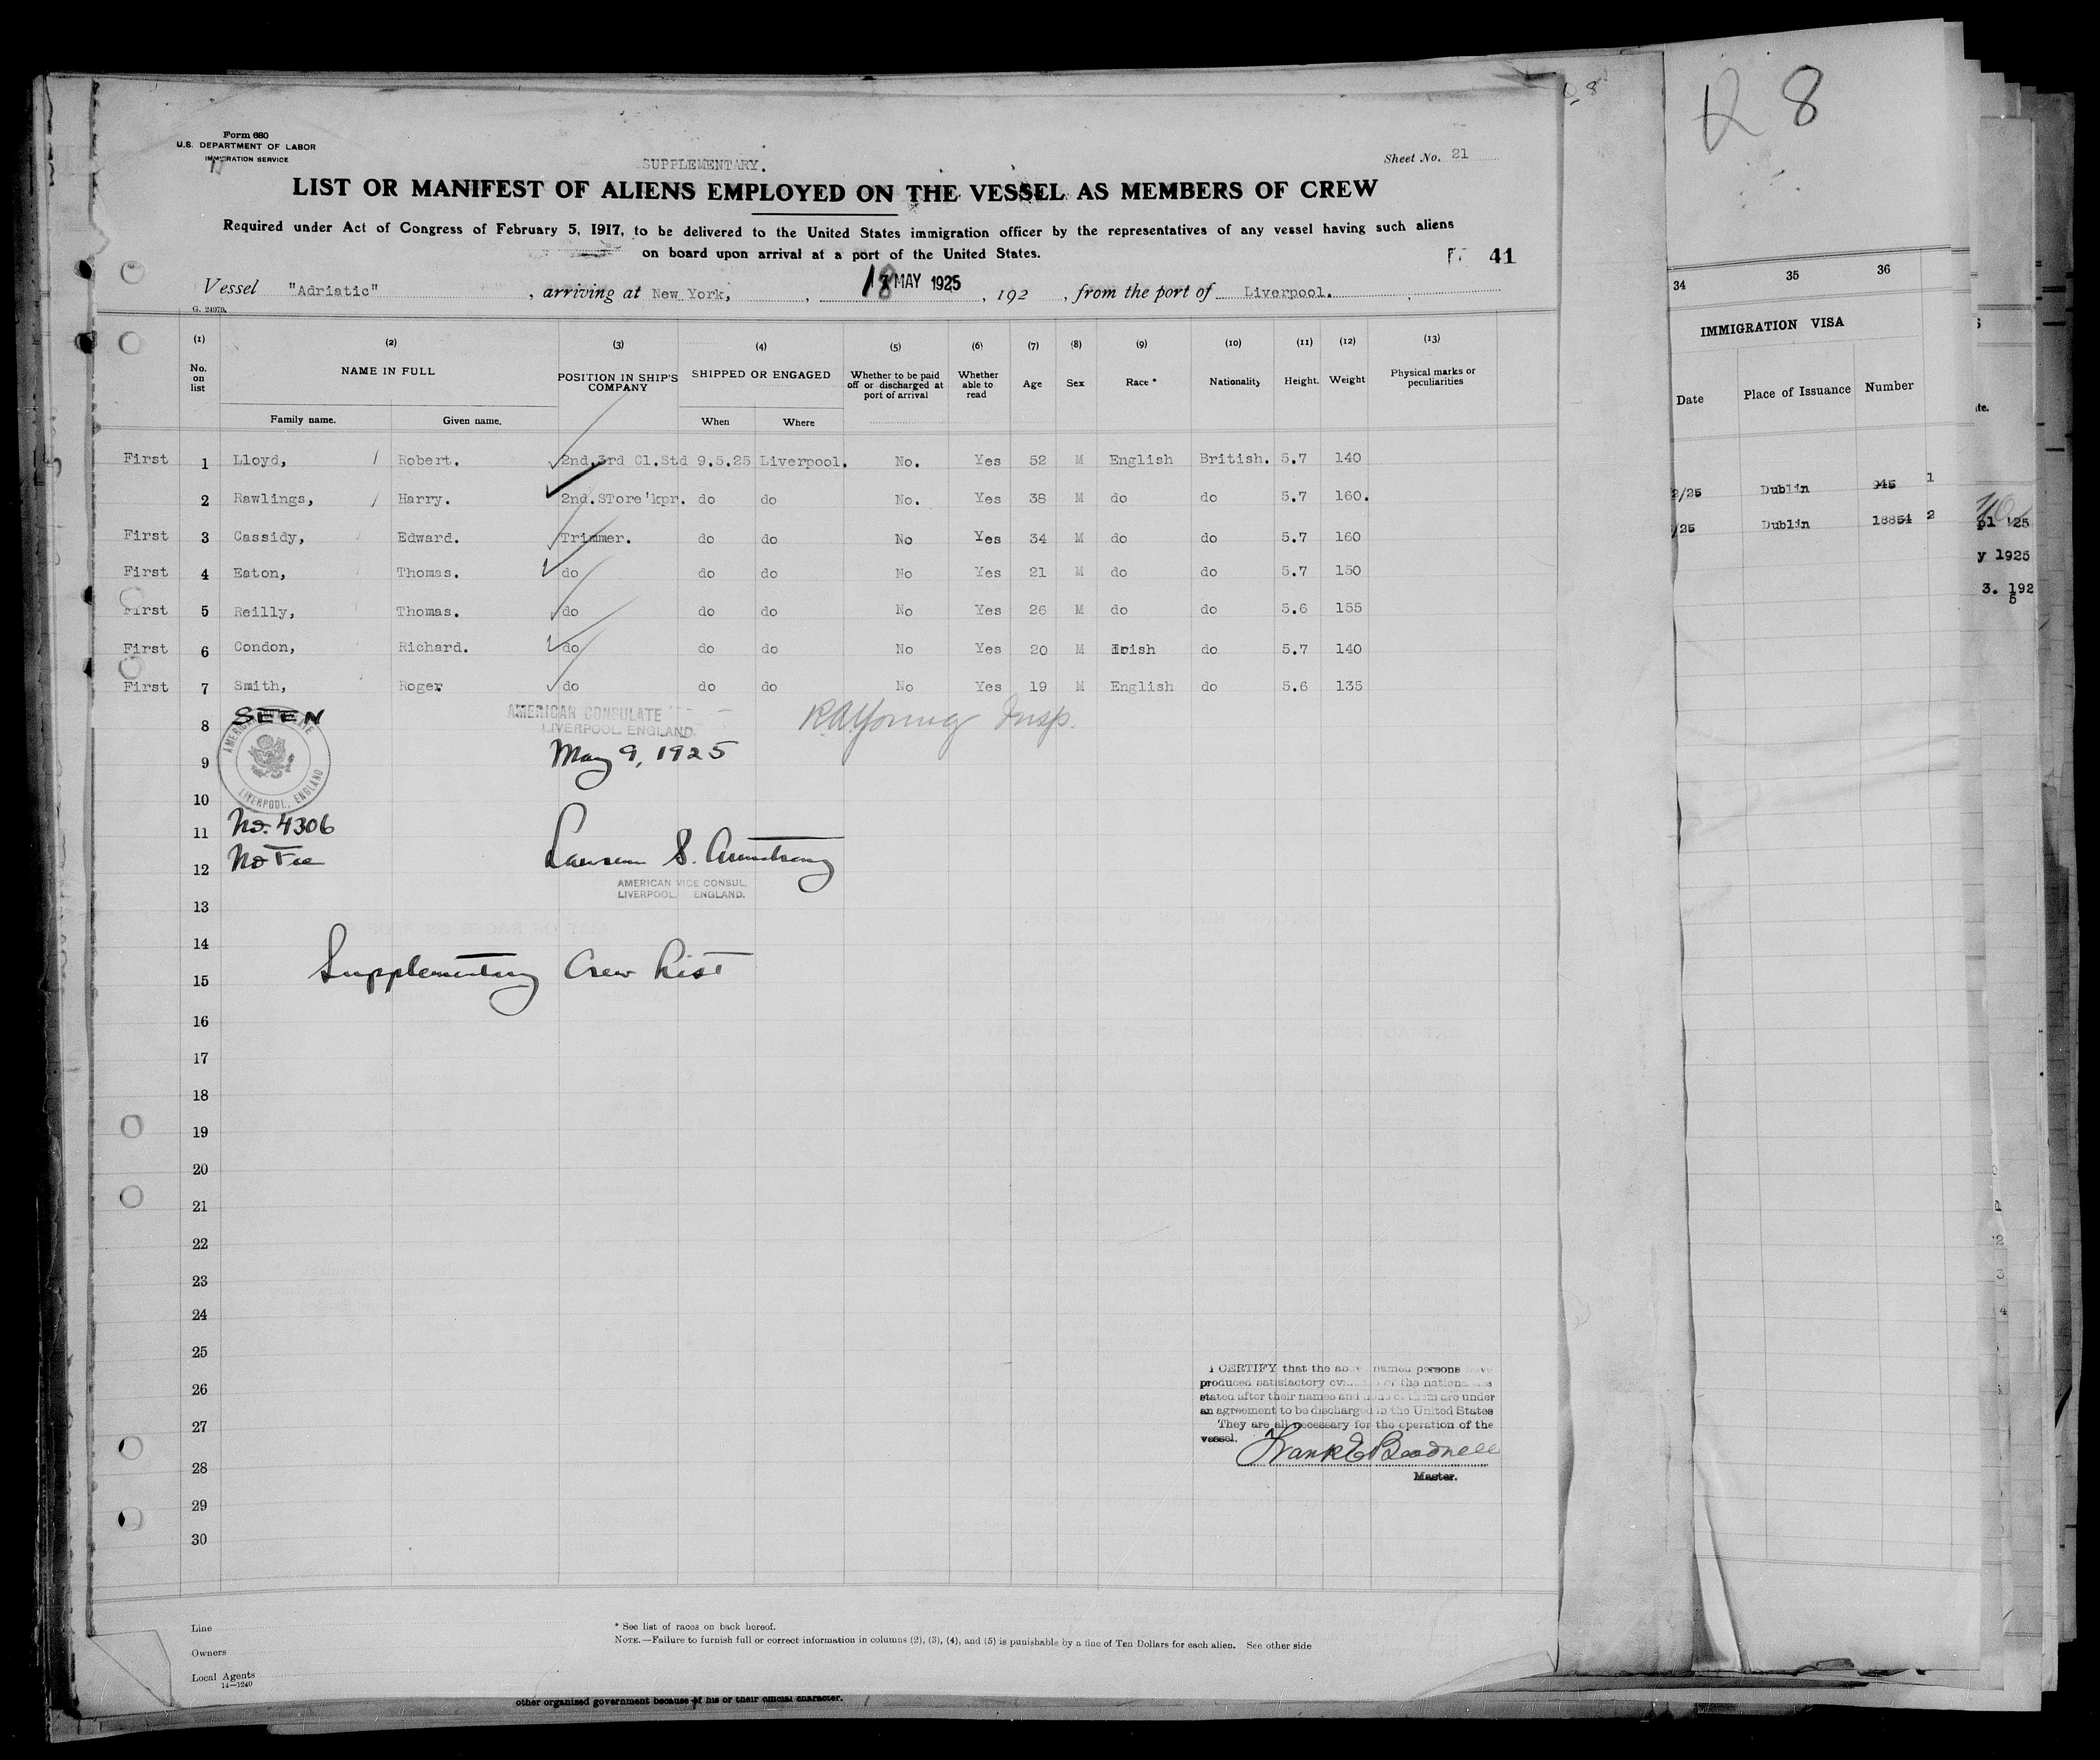 Form 680
U.S. DEPARTMENT OF LABOR
IMMIGRATION SERVICE
SUPPLEMENTARY.
Sheet No. 21
LIST OR MANIFEST OF ALIENS EMPLOYED ON THE VESSEL AS MEMBERS OF CREW
Required under Act of Congress of February 5, 1917, to be delivered to the United States immigration officer by the representatives of any vessel having such aliens
on board upon arrival at a port of the United States.
41
Vessel "Adriatic", arriving at New York, 18 MAY 1925, 192 , from the port of Liverpool.
G. 24979.
(1) (2) (3) (4) (5) (6) (7) (8) (9) (10) (11) (12) (13)
No. on list NAME IN FULL POSITION IN SHIP'S COMPANY SHIPPED OR ENGAGED Whether to be paid off or discharged at port of arrival Whether able to read Age Sex Race * Nationality Height. Weight Physical marks or peculiarities
Family name. Given name. When Where
First 1 Lloyd, Robert. 2nd.3rd Cl.Std 9.5.25 Liverpool. No. Yes 52 M English British. 5.7 140
2 Rawlings, Harry. 2nd.STore'kpr. do do No. Yes 38 M do do 5.7 160.
First 3 Cassidy, Edward. Trimmer. do do No Yes 34 M do do 5.7 160
First 4 Eaton, Thomas. do do do No Yes 21 M do do 5.7 150
First 5 Reilly, Thomas. do do do No Yes 26 M do do 5.6 155
First 6 Condon, Richard. do do do No Yes 20 M Irish do 5.7 140
First 7 Smith, Roger do do do No Yes 19 M English do 5.6 135
SEEN
AMERICAN CONSULATE
LIVERPOOL, ENGLAND
AMERICAN CONSULATE
LIVERPOOL, ENGLAND.
R.A. Young Insp.
May 9, 1925
No. 4306
No Fee
S. Armstrong
AMERICAN VICE CONSUL,
LIVERPOOL, ENGLAND.
Supplementary Crew List
8
9
10
11
12
13
14
15
16
17
18
19
20
21
22
23
24
25
26
27
28
29
30
I CERTIFY that the above named persons have
produced satisfactory of the
stated after their names and none of them are under
an agreement to be discharged in the United States
They are all necessary for the operation of the
vessel.
Frank
Master.
Line
Owners
Local Agents
14—1240
* See list of races on back hereof.
NOTE.—Failure to furnish full or correct information in columns (2), (3), (4), and (5) is punishable by a fine of Ten Dollars for each alien. See other side
other organized government because of his or their official character.
8
34 35 36
IMMIGRATION VISA
Date Place of Issuance Number
2/25 Dublin 945 1
/25 Dublin 18854 2
pl '25
y 1925
3. 192
5